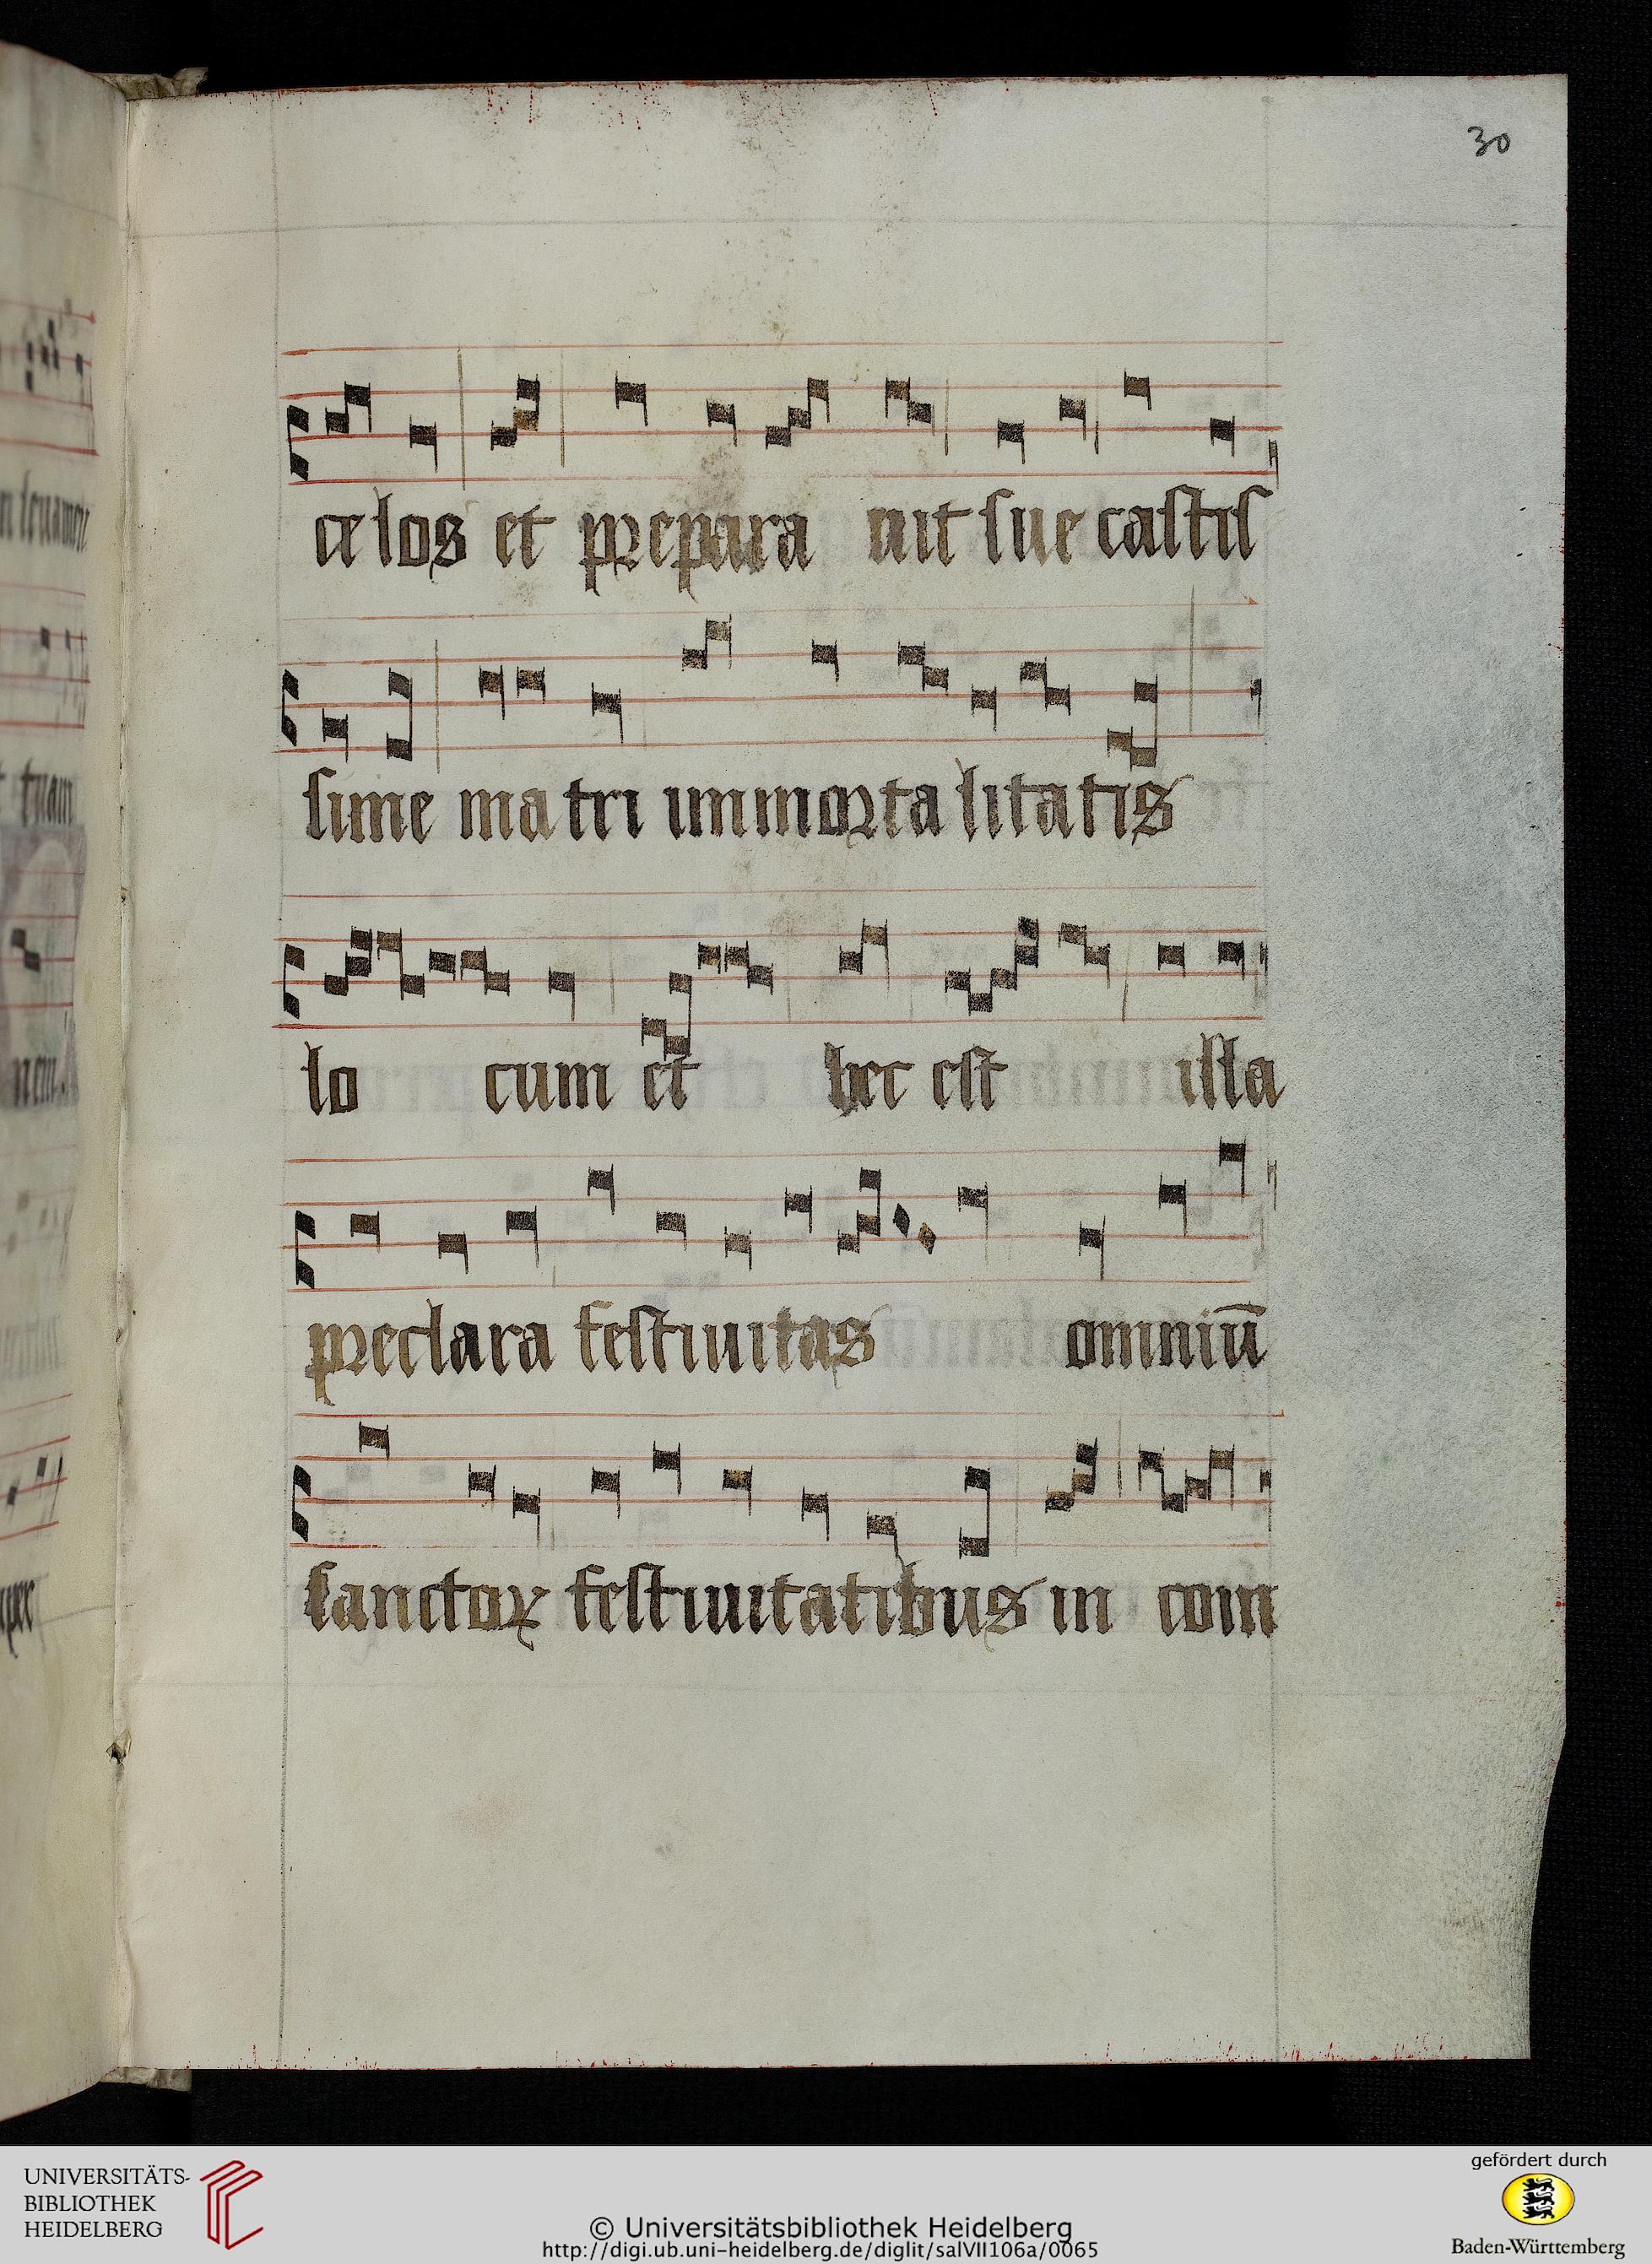 30
celos et prepara uit sue castis
sime matri immorta litatis
lo cum et hec est illa
preclara festiuitas omniū
sanctoꝝ festiuitatibus in com
UNIVERSITÄTS-
BIBLIOTHEK
HEIDELBERG
© Universitätsbibliothek Heidelberg
http://digi.ub.uni-heidelberg.de/diglit/salVII106a/0065
gefördert durch
Baden-Württemberg